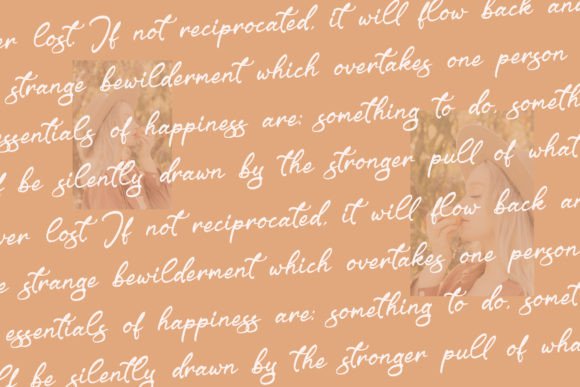 ver lost If not reciprocated, it will flow back and
strange bewilderment which overtakes one person
essentials of happiness are: something to do, someth
f be silently drawn by the stronger pull of what
ver lost If not reciprocated, it will flow back an
e strange bewilderment which overtakes one person
essentials of happiness are: something to do, somet
lf be silently drawn by the stronger pull of wha